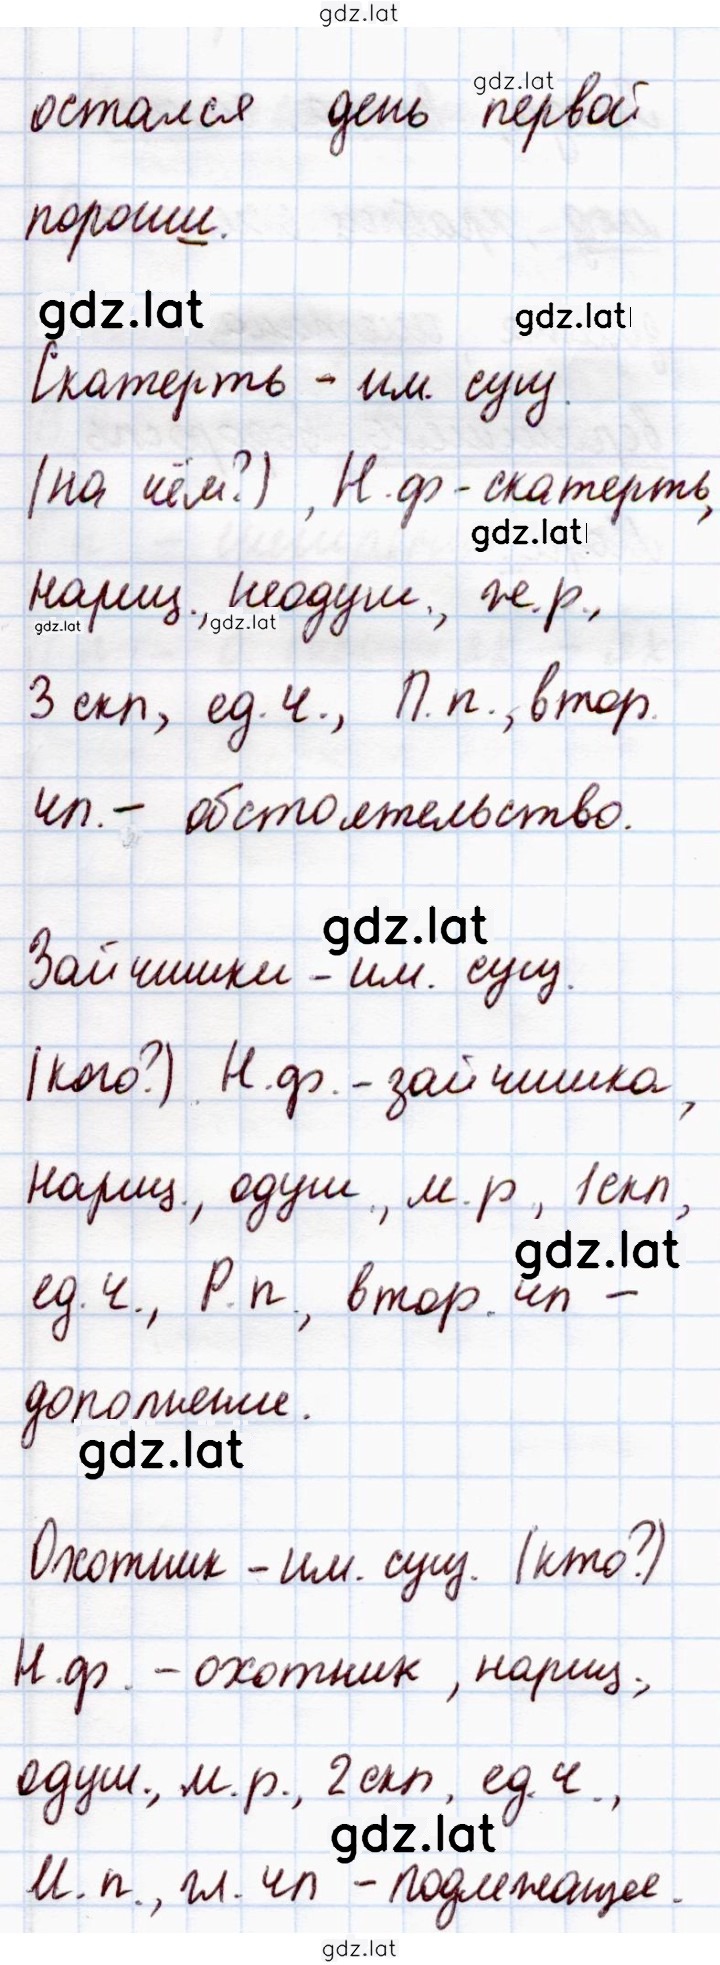 gdz.lat
gdz.lat
остался день первой
пороши.
gdz.lat gdz.lat
Скатерть - им. сущ.
(на чём?), Н.ф - скатерть,
gdz.lat
нариц., неодуш., ж.р.,
gdz.lat gdz.lat
3 скл, ед.ч., П.п., втор.
чл. - обстоятельство.
gdz.lat
Зайчишки - им. сущ.
(кого?) Н.ф. - зайчишка,
нариц., одуш., м.р, 1скл,
gdz.lat
ед.ч., Р.п., втор. чл -
дополнение.
gdz.lat
Охотник - им. сущ. (кто?)
Н.ф. - охотник, нариц.,
одуш., м.р., 2скл, ед.ч.,
gdz.lat
И.п., гл. чл - подлежащее.
gdz.lat